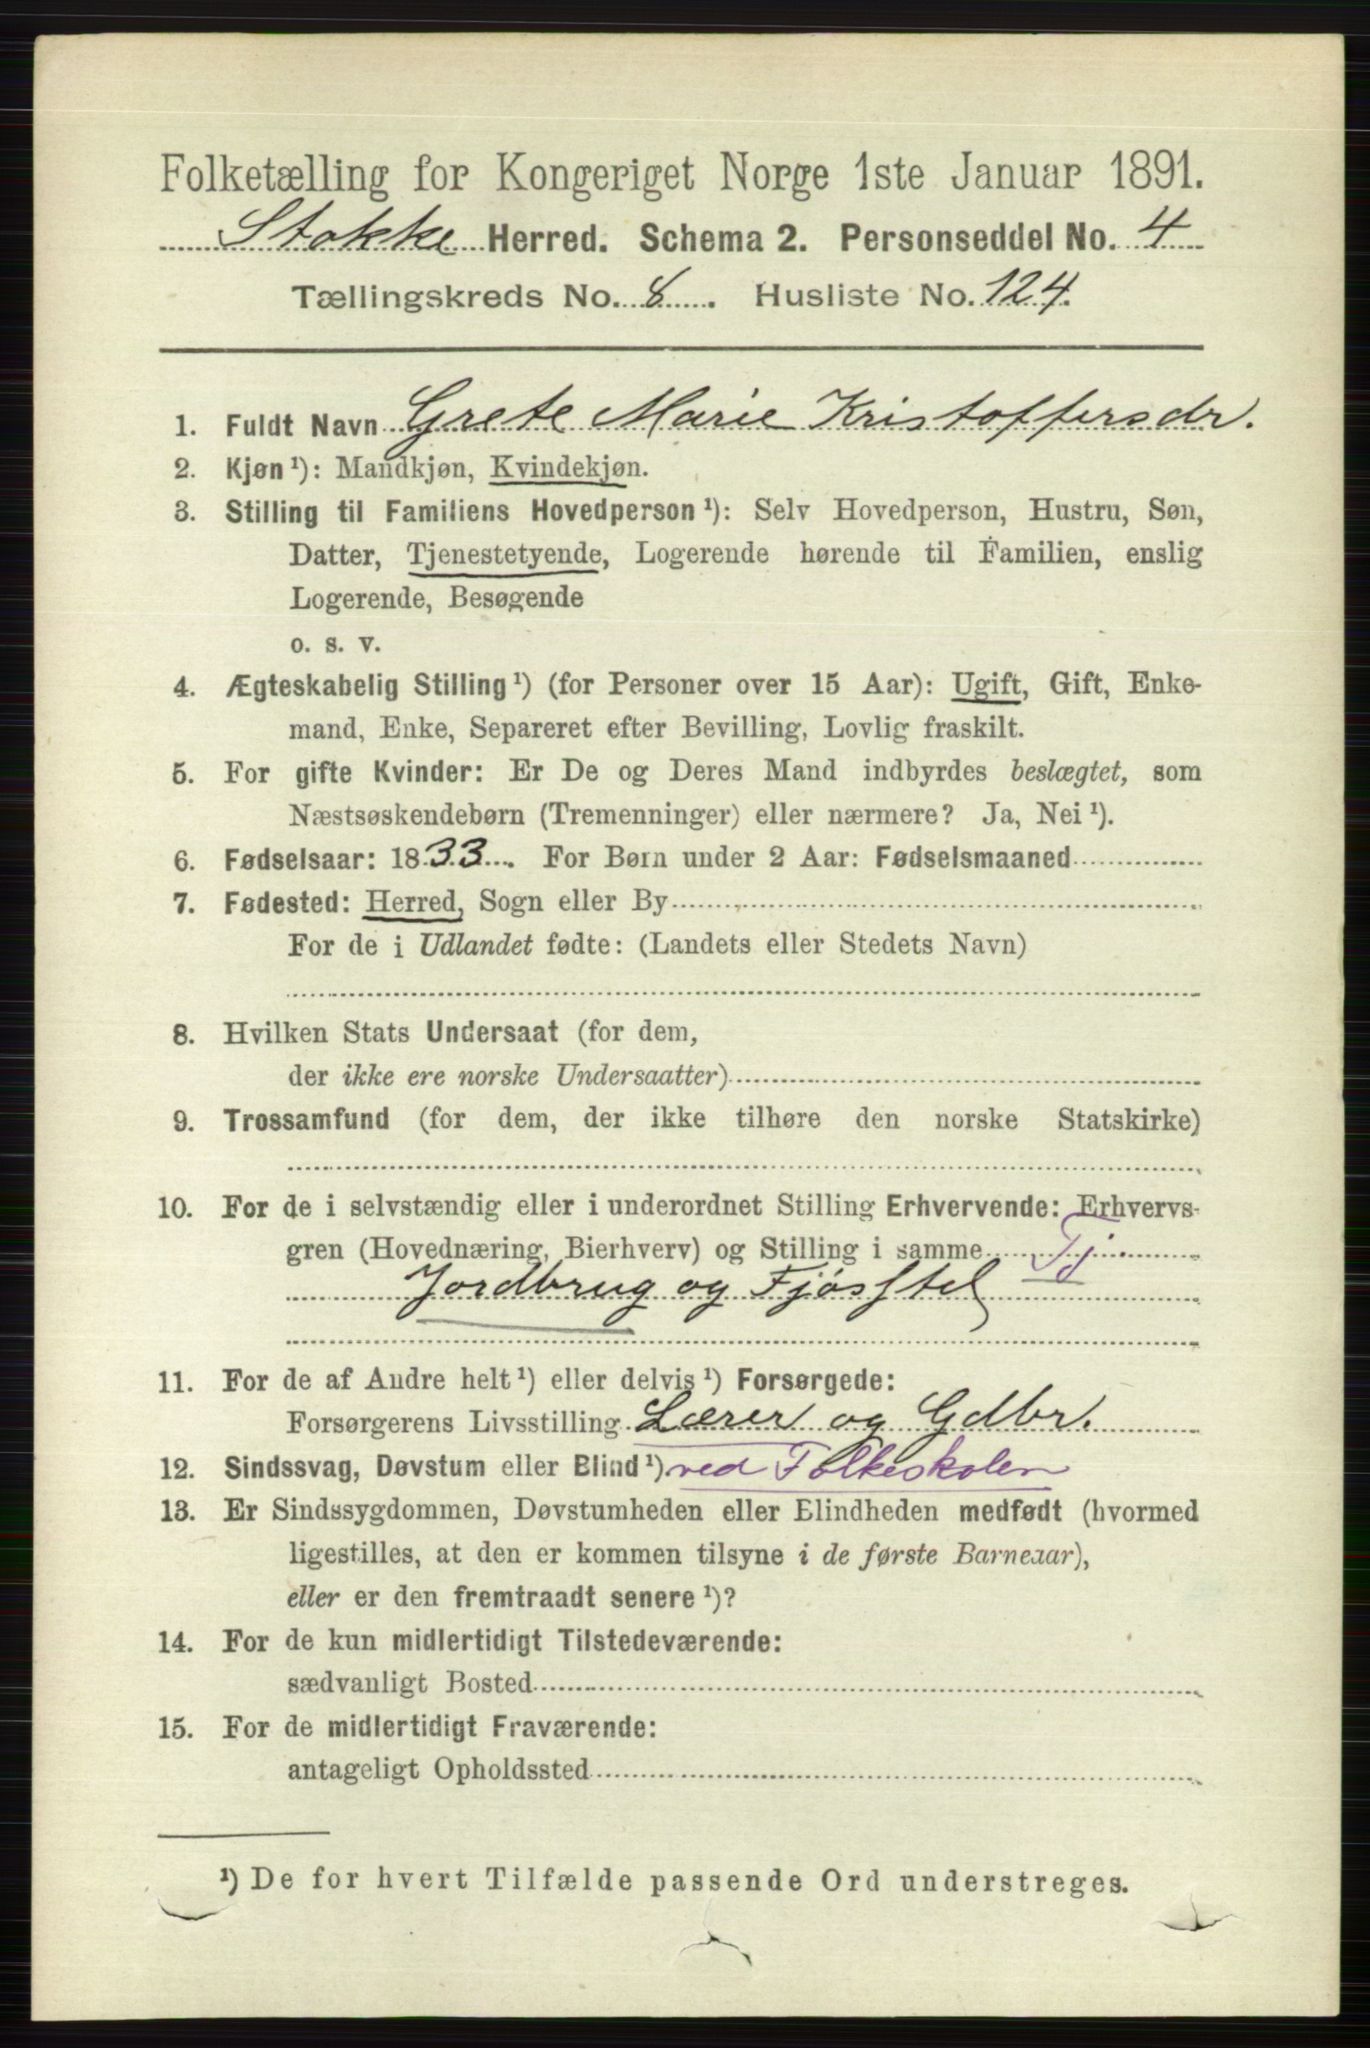 Folketælling for Kongeriget Norge 1ste Januar 1891.
Stokke Herred. Schema 2. Personseddel No. 4
Tællingskreds No. 8. Husliste No. 124.
1. Fuldt Navn Grete Marie Kristoffersdr.
2. Kjøn ¹): Mandkjøn, Kvindekjøn.
3. Stilling til Familiens Hovedperson ¹): Selv Hovedperson, Hustru, Søn,
Datter, Tjenestetyende, Logerende hørende til Familien, enslig
Logerende, Besøgende
o. s. v.
4. Ægteskabelig Stilling ¹) (for Personer over 15 Aar): Ugift, Gift, Enke-
mand, Enke, Separeret efter Bevilling, Lovlig fraskilt.
5. For gifte Kvinder: Er De og Deres Mand indbyrdes beslægtet, som
Næstsøskendebørn (Tremenninger) eller nærmere? Ja, Nei ¹).
6. Fødselsaar: 1833. For Børn under 2 Aar: Fødselsmaaned
7. Fødested: Herred, Sogn eller By
For de i Udlandet fødte: (Landets eller Stedets Navn)
8. Hvilken Stats Undersaat (for dem,
der ikke ere norske Undersaatter)
9. Trossamfund (for dem, der ikke tilhøre den norske Statskirke)
10. For de i selvstændig eller i underordnet Stilling Erhvervende: Erhvervs-
gren (Hovednæring, Bierhverv) og Stilling i samme Tj.
Jordbrug og Fjøsstel
11. For de af Andre helt ¹) eller delvis ¹) Forsørgede:
Forsørgerens Livsstilling Lærer og Gdbr.
12. Sindssvag, Døvstum eller Blind ¹) ved Folkeskolen
13. Er Sindssygdommen, Døvstumheden eller Blindheden medfødt (hvormed
ligestilles, at den er kommen tilsyne i de første Barneaar),
eller er den fremtraadt senere ¹)?
14. For de kun midlertidigt Tilstedeværende:
sædvanligt Bosted
15. For de midlertidigt Fraværende:
antageligt Opholdssted
¹) De for hvert Tilfælde passende Ord understreges.